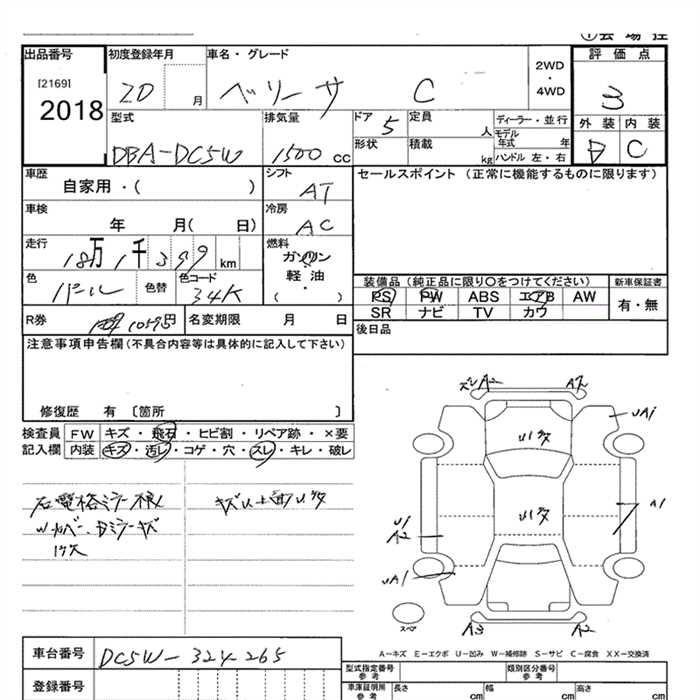 出品番号 初度登録年月 車名・グレード 2WD・4WD 評価点
[2169]
2018
20 月 ベリーサ C 3
型式 排気量 ドア 定員 ディーラー・並行 外装 内装
モデル年式 年
DBA-DC5W 1500 cc 5 人 D C
形状 積載 kg ハンドル 左・右
車歴 シフト セールスポイント (正常に機能するものに限ります)
自家用・( ) AT
車検 冷房
年 月( 日) AC
走行 燃料
18万1千399 km ガソリン・軽油
( )
色 色替 色コード 装備品 (純正品に限り○をつけてください) 新車保証書
パール 34K PS PW ABS エアB AW 有・無
SR ナビ TV カワ
R券 10595円 名変期限 月 日 後日品
注意事項申告欄(不具合内容等は具体的に記入して下さい)
修復歴 有 〔箇所 〕
検査員 FW キズ・飛石・ヒビ割・リペア跡・×要
記入欄 内装 キズ・汚レ・コゲ・穴・スレ・キレ・破レ
A2 UA1
A1
U1
A2
UA1
A3 A2
スペア
A−キズ E−エクボ U−凹み W−補修跡 S−サビ C−腐食 XX−交換済
車台番号 DC5W-324265
登録番号
型式指定番号 参考 類別区分番号 参考
車庫証明用 参考 長さ cm 幅 cm 高さ cm